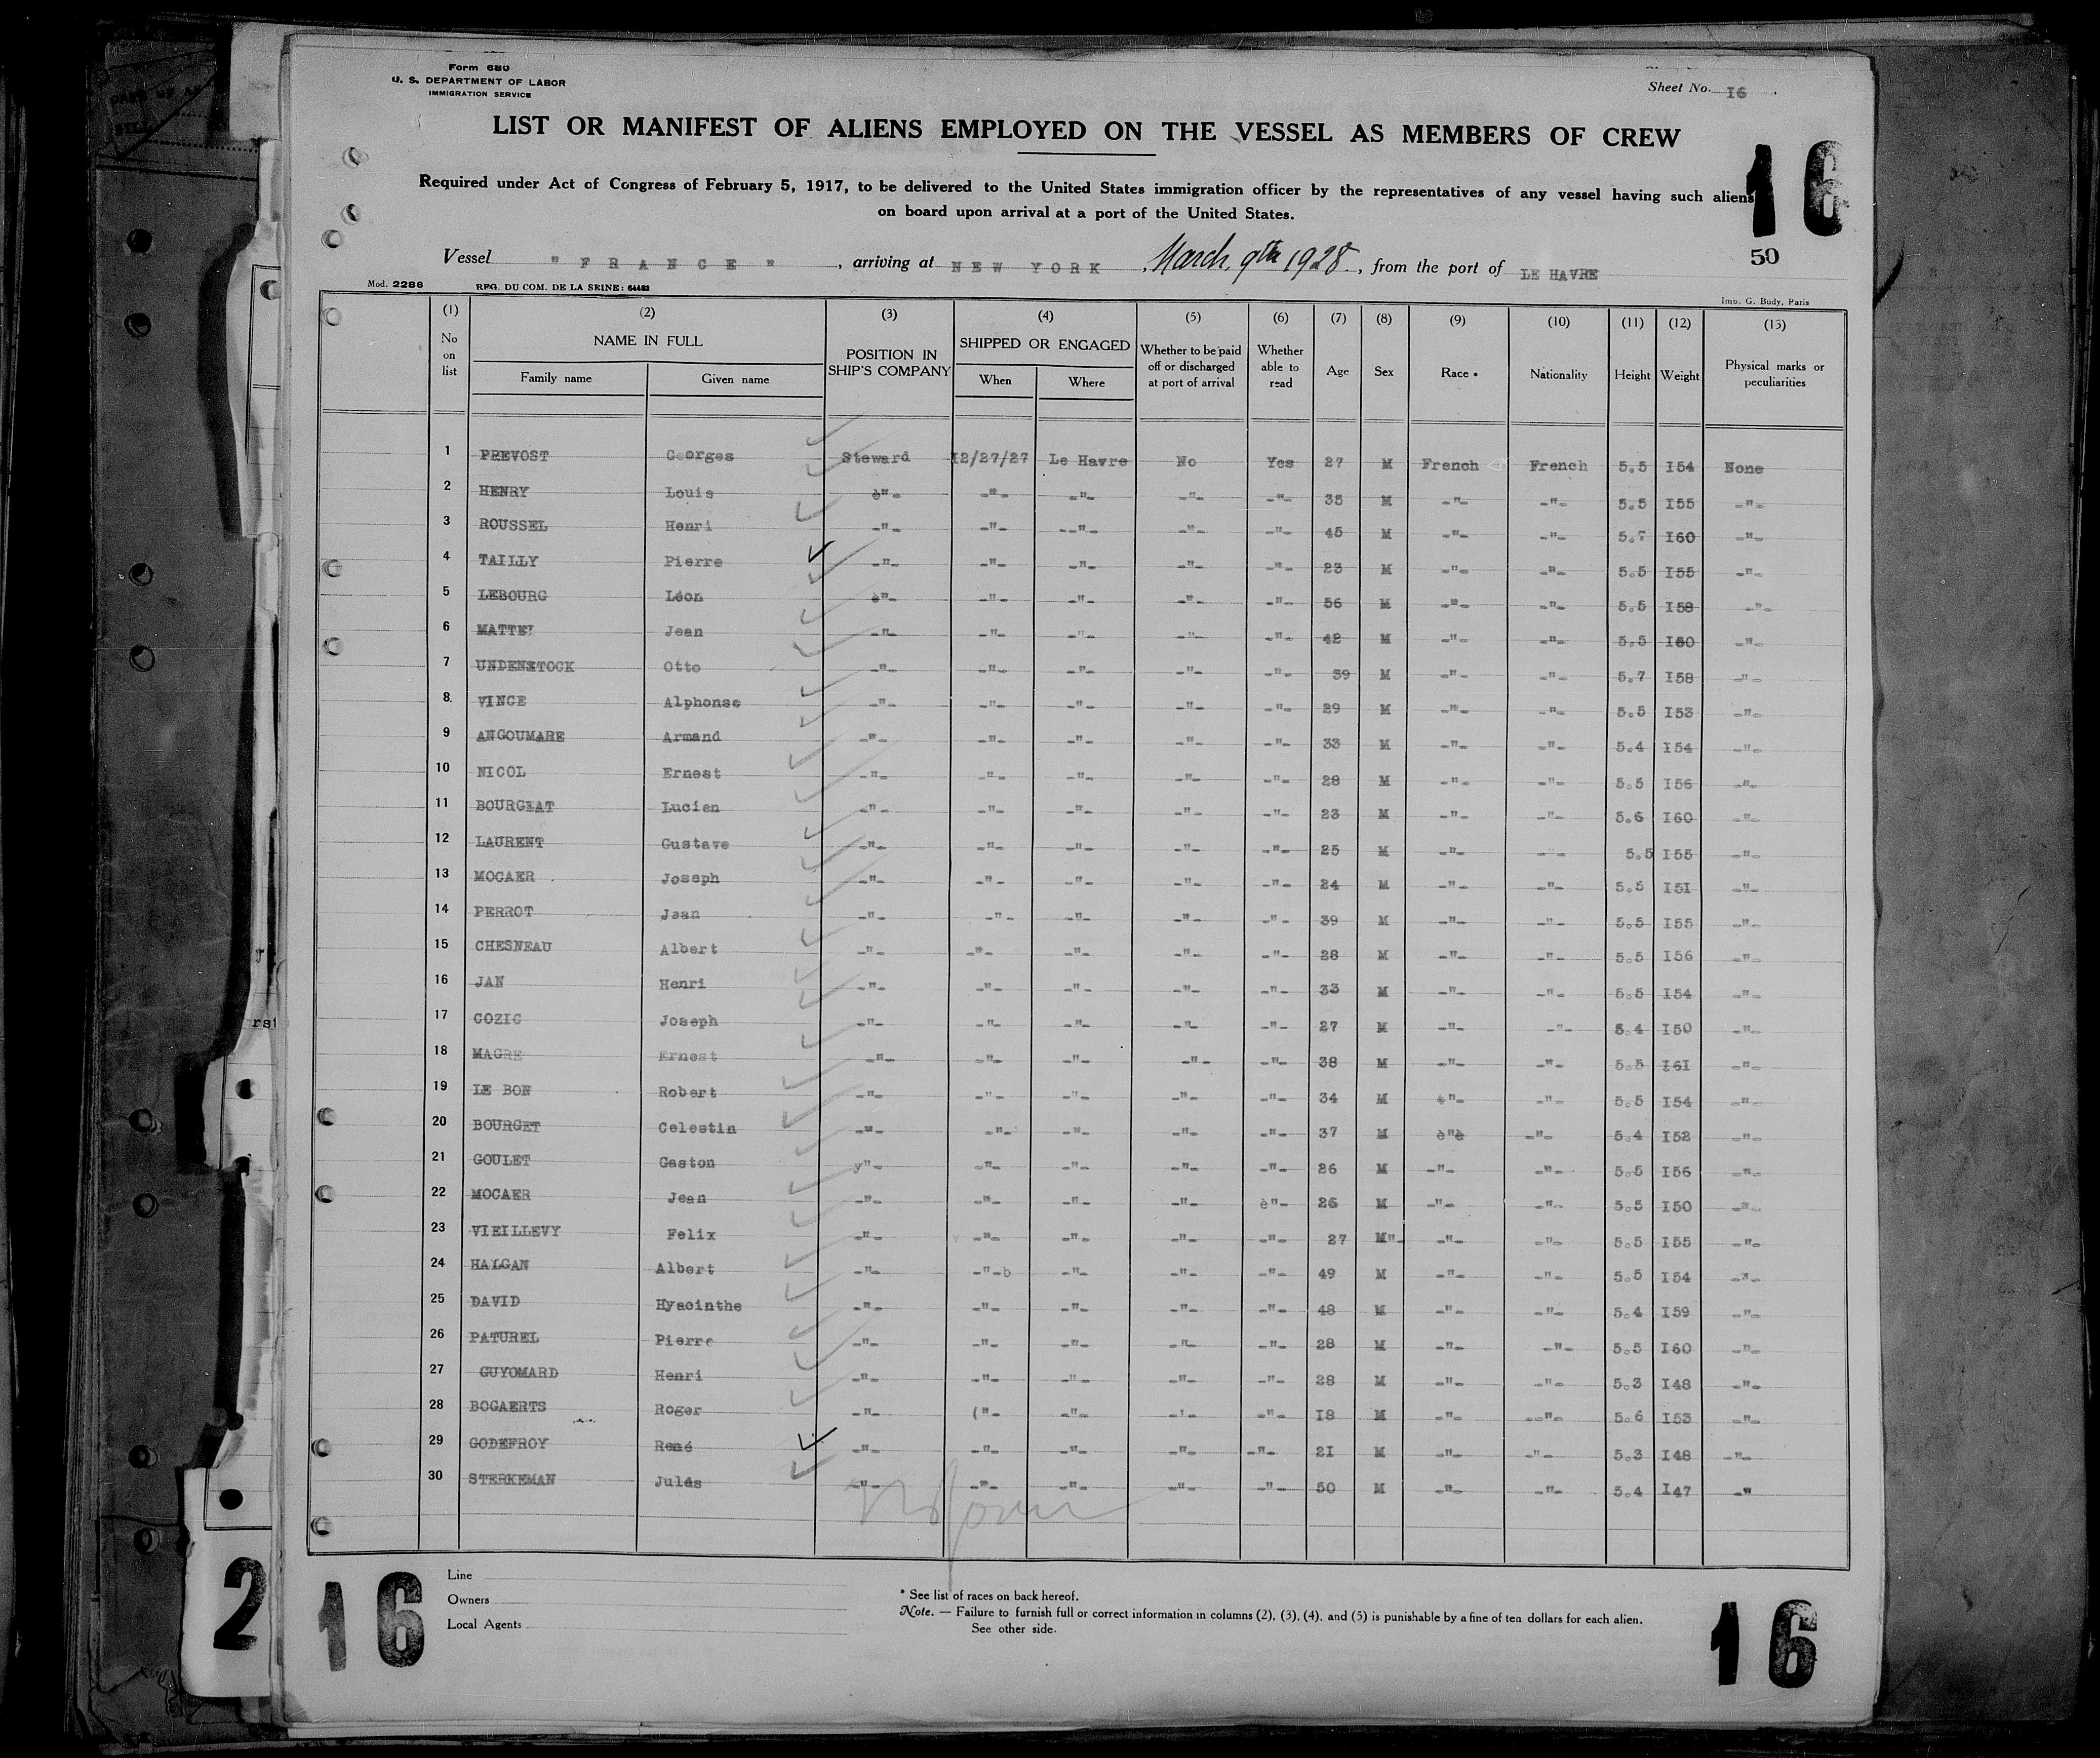 Form 680
U. S. DEPARTMENT OF LABOR
IMMIGRATION SERVICE
Sheet No. I6
LIST OR MANIFEST OF ALIENS EMPLOYED ON THE VESSEL AS MEMBERS OF CREW
16
Required under Act of Congress of February 5, 1917, to be delivered to the United States immigration officer by the representatives of any vessel having such aliens
on board upon arrival at a port of the United States.
50
Vessel " F R A N C E " , arriving at N E W Y O R K , March 9th 1928, from the port of LE HAVRE
Mod. 2286 REG. DU COM. DE LA SEINE: 64482 Imp. G. Budy, Paris
(1) No on list (2) NAME IN FULL Family name Given name (3) POSITION IN SHIP'S COMPANY (4) SHIPPED OR ENGAGED When Where (5) Whether to be paid off or discharged at port of arrival (6) Whether able to read (7) Age (8) Sex (9) Race * (10) Nationality (11) Height (12) Weight (13) Physical marks or peculiarities
1 PREVOST Georges Steward I2/27/27 Le Havre No Yes 27 M French French 5.5 I54 None
2 HENRY Louis è"- -"- -"- -"- -"- 35 M -"- -"- 5.5 I55 -"-
3 ROUSSEL Henri -"- -"- --"- -"- -"- 45 M -"- -"- 5.7 I60 -"-
4 TAILLY Pierre -"- -"- -"- -"- -"- 23 M -"- -"- 5.5 I55 -"-
5 LEBOURG Léon è"- -"- -"- -"- -"- 56 M -"- -"- 5.5 I58 -"-
6 MATTEI Jean -"- -"- -"- -"- -"- 42 M -"- -"- 5.5 I60 -"-
7 UNDENSTOCK Otto -"- -"- -"- -"- -"- 39 M -"- -"- 5.7 I58 -"-
8. VINCE Alphonse -"- -"- -"- -"- -"- 29 M -"- -"- 5.5 I53 -"-
9 ANGOUMARE Armand -"- -"- -"- -"- -"- 33 M -"- -"- 5.4 I54 -"-
10 NICOL Ernest -"- -"- -"- -"- -"- 28 M -"- -"- 5.5 I56 -"-
11 BOURGEAT Lucien -"- -"- -"- -"- -"- 23 M -"- -"- 5.6 I60 -"-
12 LAURENT Gustave -"- -"- -"- -"- -"- 25 M -"- -- 5.5 I55 -"-
13 MOCAER Joseph -"- -"- -"- -"- -"- 24 M -"- -"- 5.5 I5I -"-
14 PERROT Jean -"- -"- -"- -"- -"- 39 M -"- -"- 5.5 I55 -"-
15 CHESNEAU Albert -"- -"- -"- -"- -"- 28 M -"- -"- 5.5 I56 -"-
16 JAN Henri -"- -"- -"- -"- -"- 33 M -"- -"- 5.5 I54 -"-
17 COZIC Joseph -"- -"- -"- -"- -"- 27 M -"- -"- 5.4 I50 -"-
18 MAGRE Ernest -"- -"- -"- -"- -"- 38 M -"- -"- 5.5 I6I -"-
19 LE BON Robert -"- -"- -"- -"- -"- 34 M è"- -"- 5.5 I54 -"-
20 BOURGET Celestin -"- -"- -"- -"- -"- 37 M è"è -"- 5.4 I52 -"-
21 GOULET Gaston y"- -"- -"- -"- -"- 26 M -"- -"- 5.5 I56 -"-
22 MOCAER Jean -"- -"- -"- -"- è"- 26 M -"- -"- 5.5 I50 -"-
23 VIEILLEVY Felix -"- -"- -"- -"- -"- 27 M"- -"- -"- 5.5 I55 -"-
24 HALGAN Albert -"- -"-b -"- -"- -"- 49 M -"- -"- 5.5 I54 -"-
25 DAVID Hyacinthe -"- -"- -"- -"- -"- 48 M -"- -"- 5.4 I59 -"-
26 PATUREL Pierre -"- -"- -"- -"- -"- 28 M -"- -"- 5.5 I60 -"-
27 GUYOMARD Henri -"- -"- -"- -"- -"- 28 M -"- -"- 5.3 I48 -"-
28 BOGAERTS Roger -"- ("- -"- -'- -"- I8 M -"- --"- 5.6 I53 -"-
29 GODEFROY René -"- -"- -"- -"- -"- 2I M -"- -"- 5.3 I48 -"-
30 STERKEMAN Jules -"- -"- -"- -"- -"- 50 M -"- -"- 5.4 I47 -"
Line
Owners
Local Agents
* See list of races on back hereof.
Note. — Failure to furnish full or correct information in columns (2), (3), (4), and (5) is punishable by a fine of ten dollars for each alien.
See other side.
2
16
16